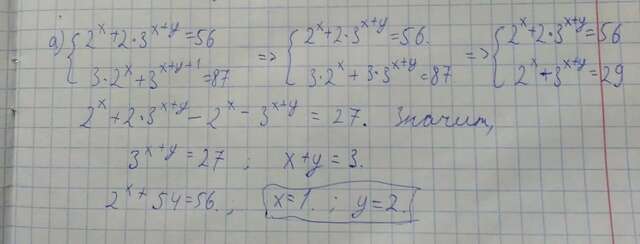 а) { 2^x+2·3^{x+y}=56 => { 2^x+2·3^{x+y}=56. => { 2^x+2·3^{x+y}=56
3·2^x+3^{x+y+1}=87 3·2^x+3·3^{x+y}=87 2^x+3^{x+y}=29
2^x+2·3^{x+y}-2^x-3^{x+y}=27. Значит,
3^{x+y}=27 ; x+y=3.
2^x+54=56. , x=1. ; y=2.